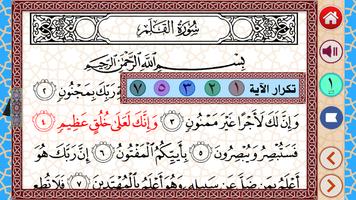 سُورَةُ القَلَمِ
بِسْمِ اللَّهِ الرَّحْمَٰنِ الرَّحِيمِ
تكرار الآية ١ ٢ ٣ ٥ ٧
١
رَبِّكَ بِمَجْنُونٍ ٢
وَإِنَّ لَكَ لَأَجْرًا غَيْرَ مَمْنُونٍ ٣ وَإِنَّكَ لَعَلَىٰ خُلُقٍ عَظِيمٍ ٤
فَسَتُبْصِرُ وَيُبْصِرُونَ ٥ بِأَييِّكُمُ الْمَفْتُونُ ٦ إِنَّ رَبَّكَ هُوَ
أَعْلَمُ بِمَن ضَلَّ عَن سَبِيلِهِ وَهُوَ أَعْلَمُ بِالْمُهْتَدِينَ ٧ فَلَا تُطِعِ